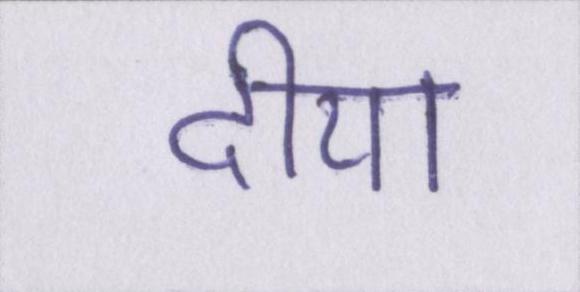 दीया